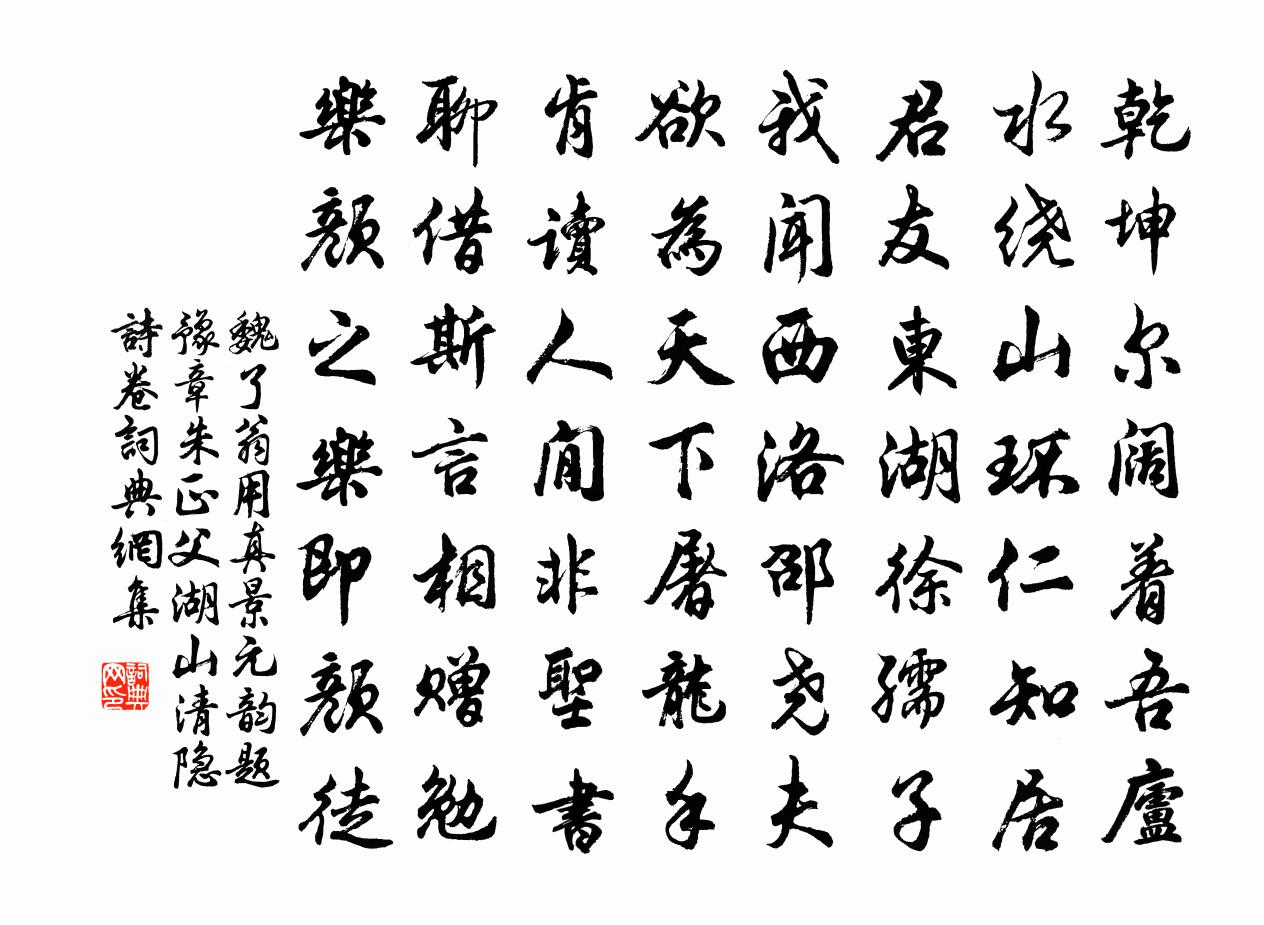 乾坤尔阔着吾廬
水绕山环仁知居
君友東湖徐孺子
我闻西洛邵尧夫
欲為天下屠龍手
肯讀人间非聖書
聊借斯言相赠勉
樂颜之樂即颜徒
魏了翁用真景元韵题
豫章朱正父湖山清隐
詩卷詞典網集
詞典网印